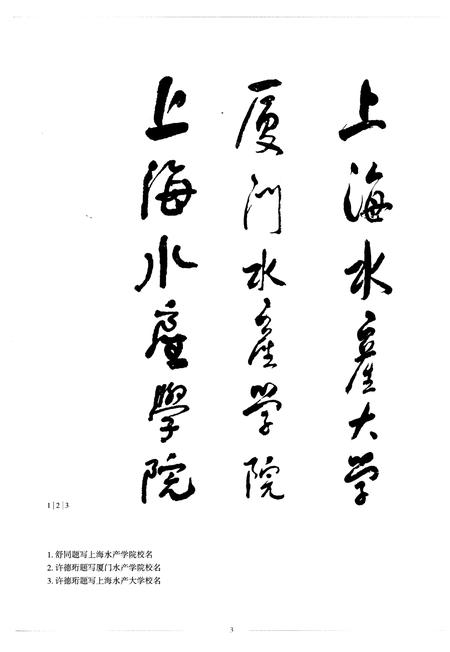 上海水產學院
厦门水產学院
上海水產大学
1|2|3
1. 舒同题写上海水产学院校名
2. 许德珩题写厦门水产学院校名
3. 许德珩题写上海水产大学校名
3